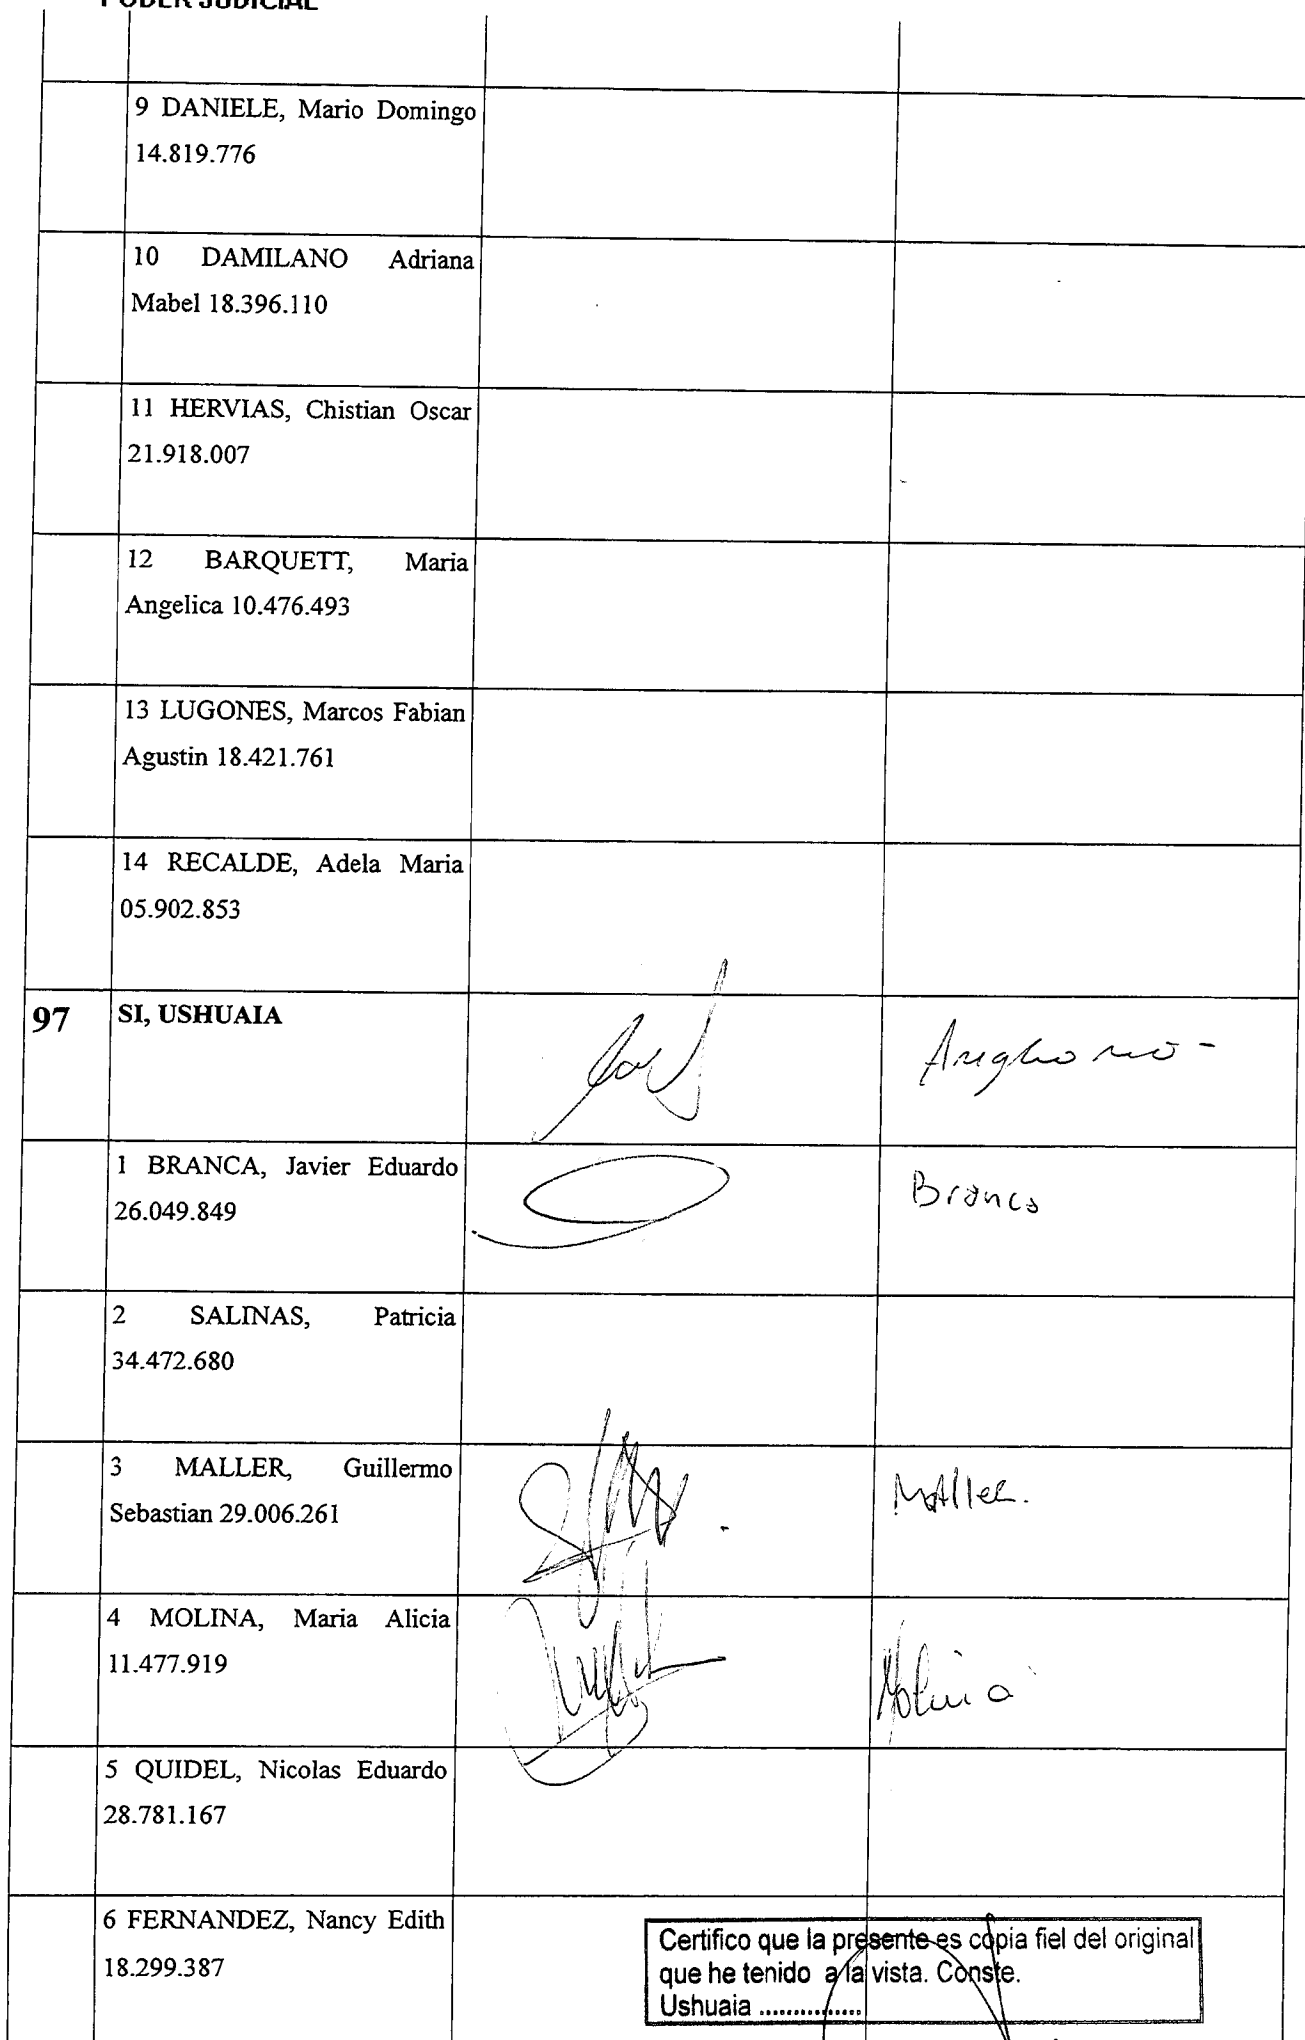 PODER JUDICIAL
9 DANIELE, Mario Domingo
14.819.776
10 DAMILANO Adriana
Mabel 18.396.110
11 HERVIAS, Chistian Oscar
21.918.007
12 BARQUETT, Maria
Angelica 10.476.493
13 LUGONES, Marcos Fabian
Agustin 18.421.761
14 RECALDE, Adela Maria
05.902.853
97 SI, USHUAIA
1 BRANCA, Javier Eduardo
26.049.849
Branca
2 SALINAS, Patricia
34.472.680
3 MALLER, Guillermo
Sebastian 29.006.261
Maller.
4 MOLINA, Maria Alicia
11.477.919
Molina
5 QUIDEL, Nicolas Eduardo
28.781.167
6 FERNANDEZ, Nancy Edith
18.299.387
Certifico que la presente es copia fiel del original
que he tenido a la vista. Conste.
Ushuaia ...............